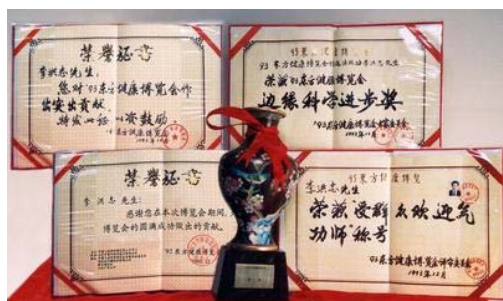 荣誉证书
李洪志先生：
您对'93东方健康博览会作
出突出贡献，
特发此证 以资鼓励。
'93东方健康博览会
1993年12月
荣获'93东方健康博览会
边缘科学进步奖
'93东方健康博览会
1993年12月
荣誉证书
李洪志 先生：
感谢您在本次博览会期间，
博览会的圆满成功做出的贡献。
'93东方健康博览会
李洪志先生
荣获"受群众欢迎气
功师"称号
'93东方健康博览会评审委员会
1993年12月